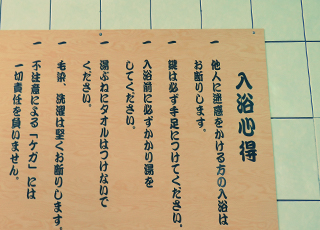 入浴心得
一 他人に迷惑をかける方の入浴は
お断りします。
一 鍵は必ず手足につけてください。
一 入浴前に必ずかかり湯を
してください。
一 湯ぶねにタオルはつけないで
ください。
一 毛染、洗濯は堅くお断りします。
一 不注意による「ケガ」には
一切責任を負いません。